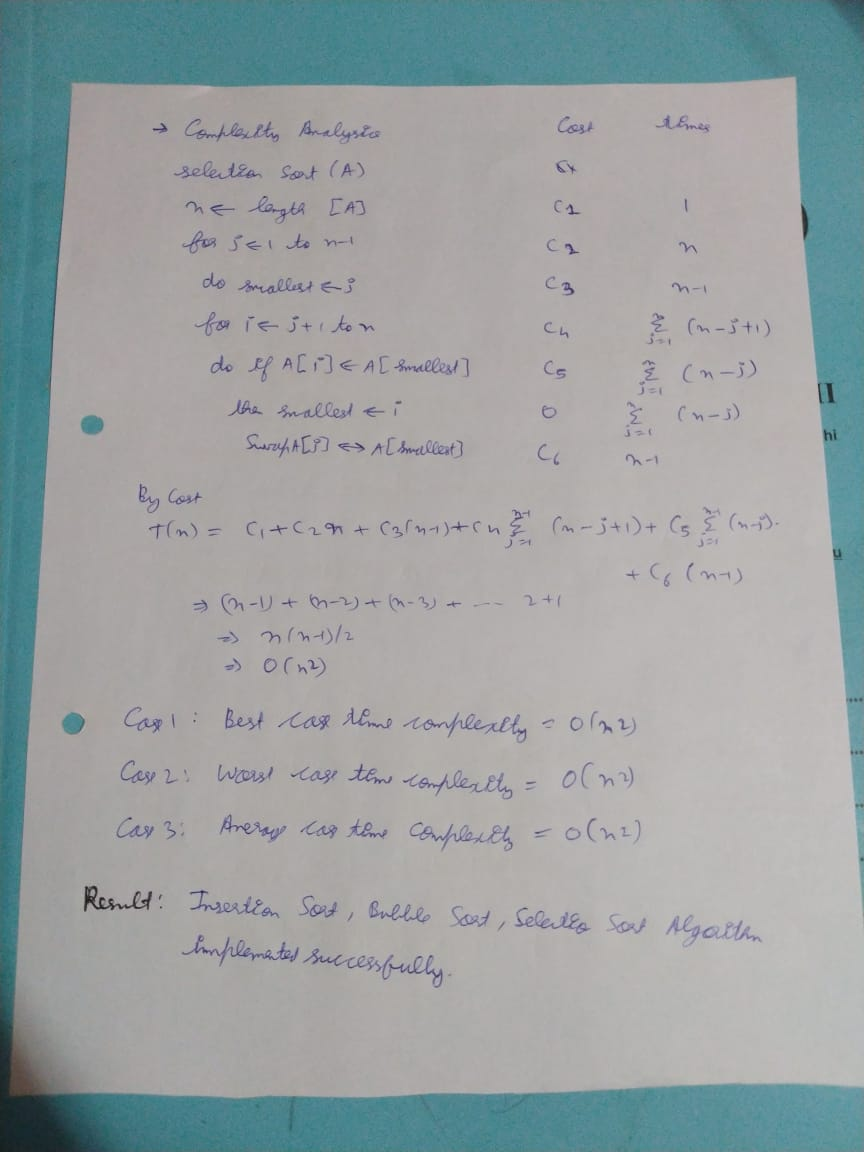 → Complexity Analysis Cost times
selection Sort (A)
n ← length [A] C1 1
for j ← 1 to n-1 C2 n
do smallest ← j C3 n-1
for i ← j+1 to n C4 n Σ j=1 (n-j+1)
do if A[i] ← A[smallest] C5 n Σ j=1 (n-j)
the smallest ← i 0 n Σ j=1 (n-j)
Swap A[j] ↔ A[smallest] C6 n-1
By Cost
T(n) = C1 + C2 n + C3(n-1) + C4 n-1 Σ j=1 (n-j+1) + C5 n-1 Σ j=1 (n-j).
+ C6 (n-1)
⇒ (n-1) + (n-2) + (n-3) + --- 2+1
⇒ n(n-1)/2
⇒ O(n2)
Case 1 : Best case time complexity = O(n2)
Case 2 : Worst case time complexity = O(n2)
Case 3 : Average cas time complexity = O(n2)
Result : Insertion Sort, Bubble Sort, Selectio Sort Algorithm
implemented successfully.
II
hi
u